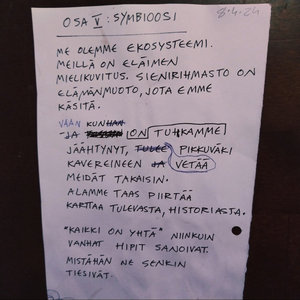 OSA V: SYMBIOOSI
8.4.24
ME OLEMME EKOSYSTEEMI.
MEILLÄ ON ELÄIMEN
MIELIKUVITUS. SIENIRIHMASTO ON
ELÄMÄNMUOTO, JOTA EMME
KÄSITÄ.
VAAN KUNHAN
JA ON TUHKAMME
JÄÄHTYNYT, TULEE PIKKUVÄKI
KAVEREINEEN JA VETÄÄ
MEIDÄT TAKAISIN.
ALAMME TAAS PIIRTÄÄ
KARTTAA TULEVASTA, HISTORIASTA.
"KAIKKI ON YHTÄ" NIINKUIN
VANHAT HIPIT SANOIVAT.
MISTÄHÄN NE SENKIN
TIESIVÄT.